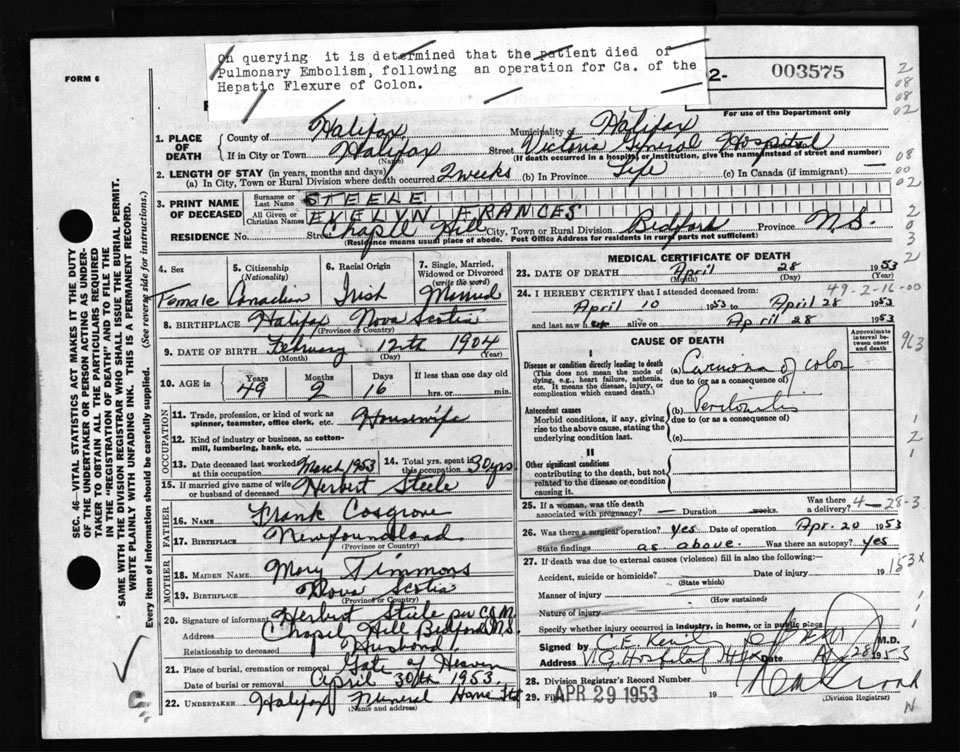 On querying it is determined that the patient died of
Pulmonary Embolism, following an operation for Ca. of the
Hepatic Flexure of Colon.
FORM 6
2- 003575
For use of the Department only
1. PLACE OF DEATH
County of Halifax Municipality of Halifax
If in City or Town Halifax Street Victoria General Hospital
(Name) (If death occurred in a hospital or institution, give the name instead of street and number)
2. LENGTH OF STAY (in years, months and days)
(a) In City, Town or Rural Division where death occurred 2 weeks (b) In Province Life (c) In Canada (if immigrant)
3. PRINT NAME OF DECEASED
Surname or Last Name STEELE
All Given or Christian Names EVELYN FRANCES
RESIDENCE No. Street Chapel Hill City, Town or Rural Division Bedford Province N.S.
(Residence means usual place of abode. Post Office Address for residents in rural parts not sufficient)
4. Sex Female
5. Citizenship (Nationality) Canadian
6. Racial Origin Irish
7. Single, Married, Widowed or Divorced (write the word) Married
8. BIRTHPLACE Halifax Nova Scotia
(Province or Country)
9. DATE OF BIRTH February 12th 1904
(Month) (Day) (Year)
10. AGE in Years Months Days If less than one day old
49 2 16 hrs. or min.
OCCUPATION
11. Trade, profession, or kind of work as spinner, teamster, office clerk, etc. Housewife
12. Kind of industry or business, as cotton-mill, lumbering, bank, etc.
13. Date deceased last worked at this occupation March 1953
14. Total yrs. spent in this occupation 30 yrs
15. If married give name of wife or husband of deceased Herbert Steele
FATHER
16. NAME Frank Cosgrove
17. BIRTHPLACE Newfoundland
(Province or Country)
MOTHER
18. MAIDEN NAME Mary Simmons
19. BIRTHPLACE Nova Scotia
(Province or Country)
20. Signature of informant Herbert Steele per C.D.M.
Address Chapel Hill Bedford N.S.
Relationship to deceased Husband
21. Place of burial, cremation or removal Gate of Heaven
Date of burial or removal April 30th 1953.
22. UNDERTAKER Halifax Funeral Home Ltd
(Name and address)
MEDICAL CERTIFICATE OF DEATH
23. DATE OF DEATH April 28 1953
(Month) (Day)
49-2-16-00
24. I HEREBY CERTIFY that I attended deceased from:
April 10 1953 to April 28 1953
and last saw her alive on April 28 1953
CAUSE OF DEATH
Approximate interval between onset and death
I
Disease or condition directly leading to death
(This does not mean the mode of dying, e.g., heart failure, asthenia, etc. It means the disease, injury, or complication which caused death.)
(a) Carcinoma of colon
due to (or as a consequence of)
Antecedent causes
Morbid conditions, if any, giving rise to the above cause, stating the underlying condition last.
(b) Peritonitis
due to (or as a consequence of)
(c)
II
Other significant conditions
contributing to the death, but not related to the disease or condition causing it.
25. If a woman, was the death associated with pregnancy? Duration weeks. Was there a delivery?
4-28-3
26. Was there a surgical operation? yes Date of operation Apr. 20 1953
State findings as above. Was there an autopsy? yes
27. If death was due to external causes (violence) fill in also the following:
Accident, suicide or homicide? Date of injury 19
(State which)
153X
Manner of injury
(How sustained)
Nature of injury
Specify whether injury occurred in industry, in home, or in public place
Signed by M.D.
Address V.G. Hospital Hfx Date 28 1953
28. Division Registrar's Record Number
29. Filed APR 29 1953 19
(Division Registrar)
SEC. 46—VITAL STATISTICS ACT MAKES IT THE DUTY
OF THE UNDERTAKER OR PERSON ACTING AS UNDER-
TAKER TO OBTAIN ALL THE PARTICULARS REQUIRED
IN THE "REGISTRATION OF DEATH" AND TO FILE THE
SAME WITH THE DIVISION REGISTRAR WHO SHALL ISSUE THE BURIAL PERMIT.
WRITE PLAINLY WITH UNFADING INK. THIS IS A PERMANENT RECORD.
Every item of information should be carefully supplied. (See reverse side for instructions.)